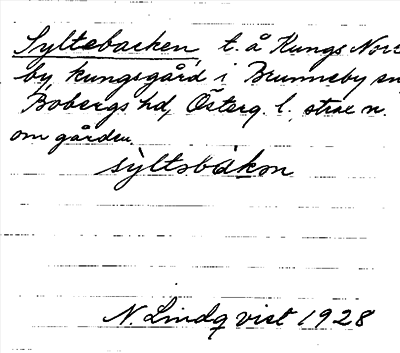 Syltebacken, t. å Kungs Nor
by kungsgård i Brunneby sn
Bobergs hd, Österg. l. strax n.
om gården.
sỳltəbàkən
N. Lindqvist 1928